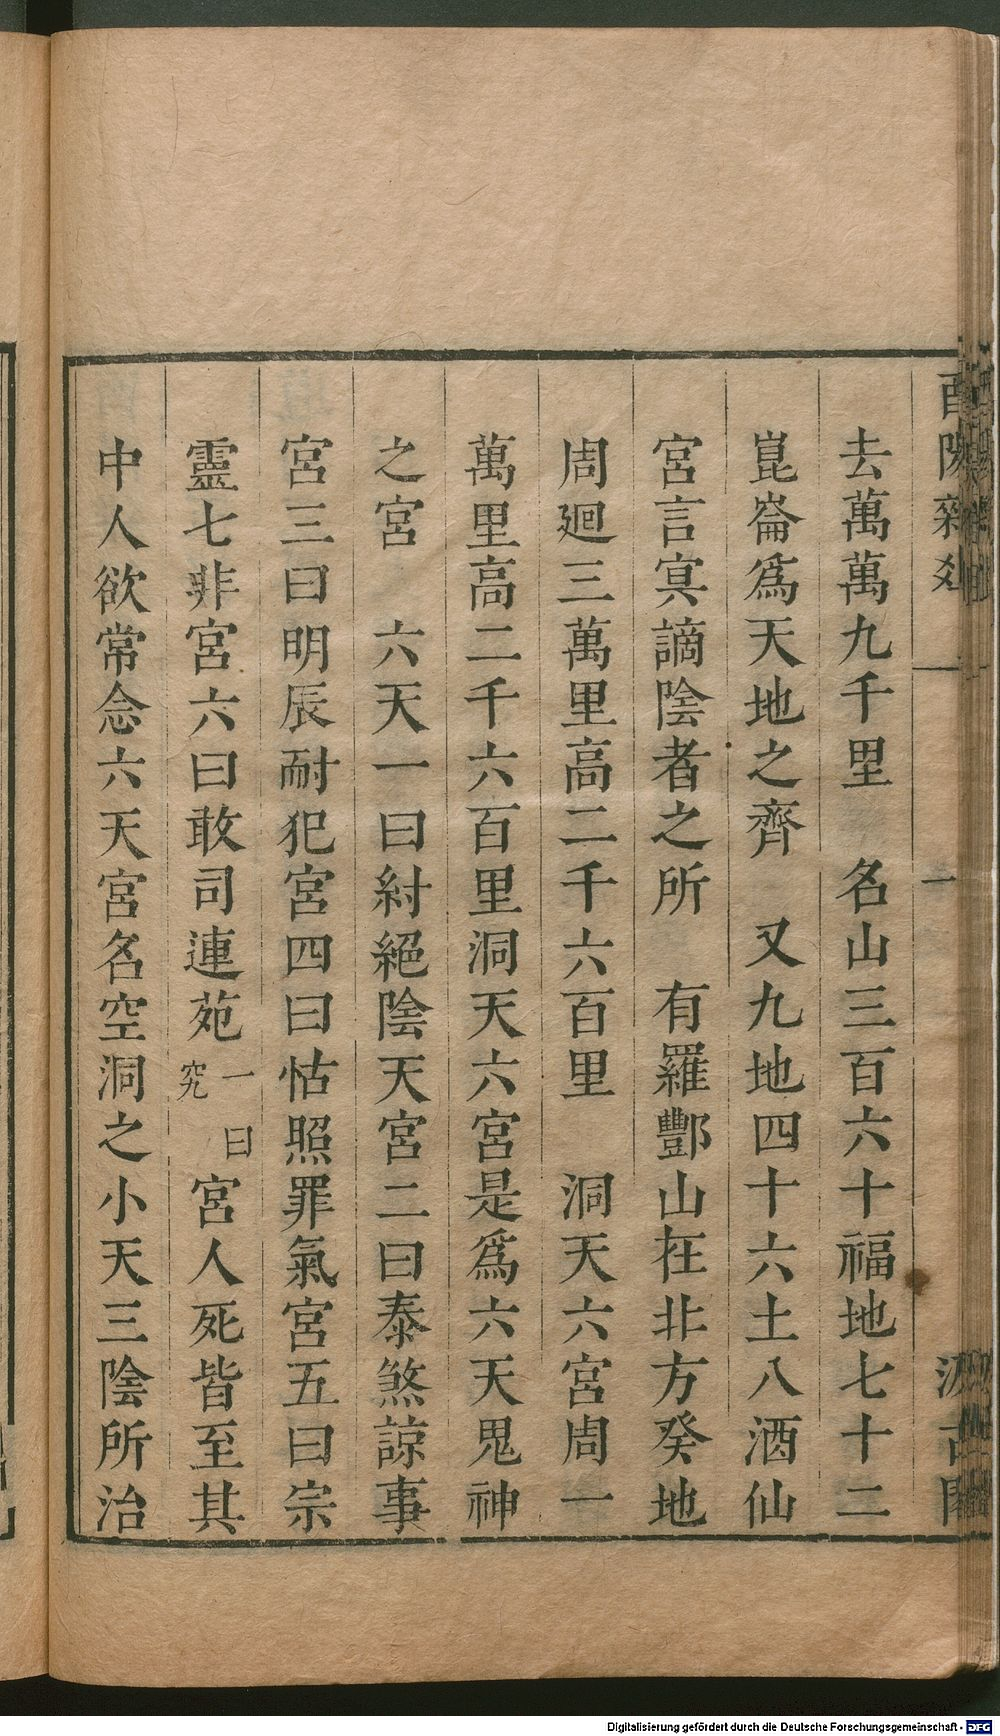 酉陽雜俎 一 一 汲古閣
去萬萬九千里　名山三百六十福地七十二
崑崙爲天地之齊　又九地四十六土八酒仙
宮言㝠謫陰者之所　有羅酆山在北方癸地
周廻三萬里高二千六百里　洞天六宮周一
萬里高二千六百里洞天六宮是爲六天鬼神
之宮　六天一曰紂絕陰天宮二曰泰煞諒事
宮三曰明辰耐犯宮四曰怙照罪氣宮五曰宗
靈七非宮六曰敢司連苑一曰究宮人死皆至其
中人欲常念六天宮名空洞之小天三陰所治
Digitalisierung gefördert durch die Deutsche Forschungsgemeinschaft - DFG